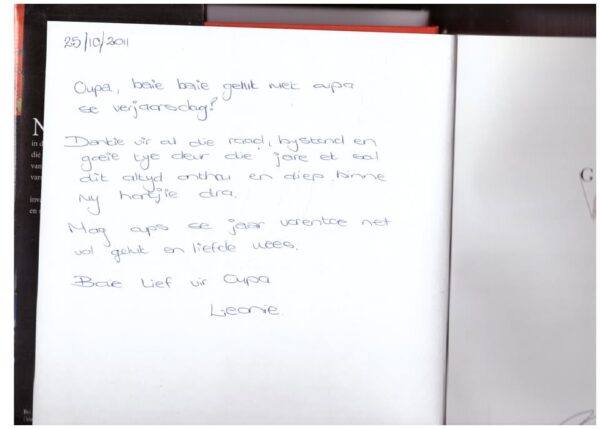 25/10/2011
Oupa, baie baie geluk met oupa
se verjaarsdag!
Dankie vir al die raad, bystand en
goeie tye deur die jare ek sal
dit altyd onthou en diep binne
my hartjie dra.
Mag oupa se jaar vorentoe net
vol geluk en liefde wees.
Baie Lief vir Oupa
Leonie.
N
in d
dié
van
vars
inva
en s
G